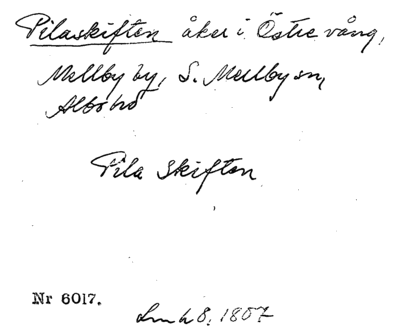 Pilaskiften åker i Östre vång,
Mellby by, S. Mellby sn,
Albo hd
Pila skiften
Nr 6017.
Lm h 8. 1807